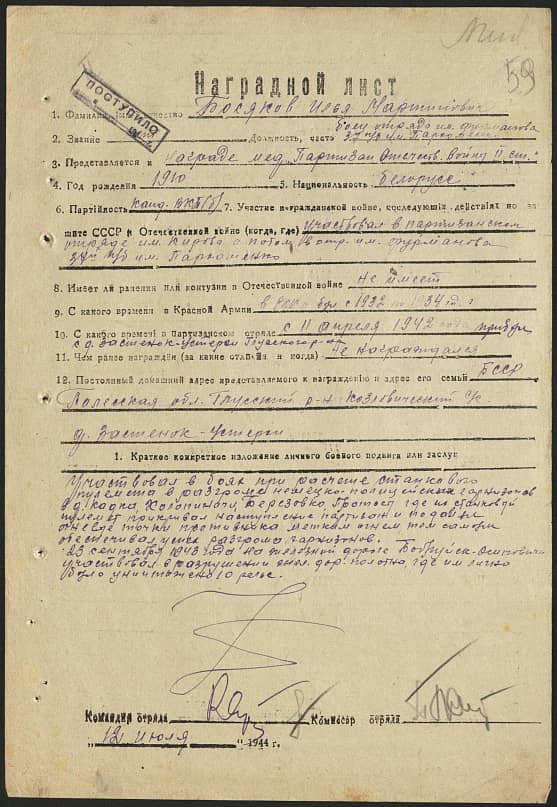 59
Наградной лист
ПОСТУПИЛО
1. Фамилия, имя отчество Босяков Илья Мартинович
2. Звание Должность, часть боец отряда им. Фурманова
37 п/б им. Пархоменко
3. Представляется к награде мед. "Партизан Отечеств. войны II ст."
4. Год рождения 1910 5. Национальность белорусс
6. Партийность канд. ВКП(б) 7. Участие в гражданской войне, последующих действиях по за-
щите СССР и Отечественной войне (когда, где) участвовал в партизанском
отряде им. Кирова а потом в отр. им. Фурманова
37й п/б им. Пархоменко
8. Имеет ли ранения или контузии в Отечественной войне не имеет
9. С какого времени в Красной Армии в РККА был с 1932 по 1934 г.
10. С какого времени в Партизанском отряде с 11 апреля 1942 года прибыл
с д. Застенок-Устерхи Глусского р-на
11. Чем ранее награжден (за какие отличия и когда) не награждался
12. Постоянный домашний адрес представляемого к награждению и адрес его семьи БССР
Полесская обл. Глусский р-н Козловический с/с
д. Застенок-Устерхи
1. Краткое конкретное изложение личного боевого подвига или заслуг
Участвовал в боях при расчете станкового
пулемета в разгроме немецко-полицейских гарнизонов
в д. Холопиничи, Березовка, Протасы, где из станковой
пулемет прикрывал наступление партизан и подавлял
огневые точки противника метким огнем тем самым
обеспечивал успех разгрома гарнизонов.
23 сентября 1943 года на железной дороге Бобруйск-Осиповичи
участвовал в разрушении жел. дор. полотна, где им лично
было уничтожено 10 рельс.
Командир отряда Комиссар отряда
„12 июля" 1944 г.